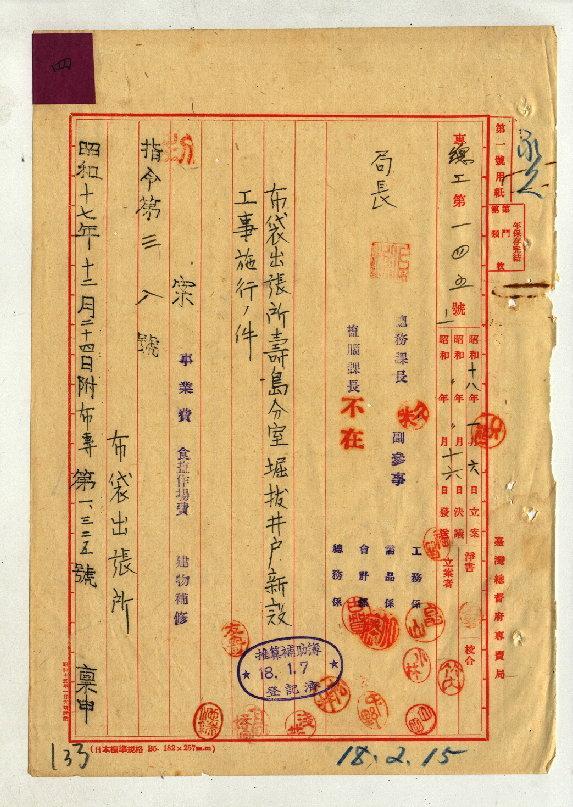 四
永久
第一號用紙
年保存完結
第 門
第 類
數
專總工第一四五號ノ一
昭和十八年一月六日立案
昭和 年 月 日決議
昭和 年 月十六日發
淨書
校合
立案者
臺灣總督府專賣局
局長
總務課長
副參事
鹽腦課長
不在
工務係
需品係
會計係
總務係
布袋出張所壽島分室堀拔井戶新設
工事施行ノ件
事業費 食鹽作場費 建物補修
案
指令第三八號
布袋出張所
昭和十七年十二月二十四日附布專第一、三二五號
稟申
推算補助簿
18.1.7
登記濟
(日本標準規格 B5. 182×257m.m)
133
18.2.15